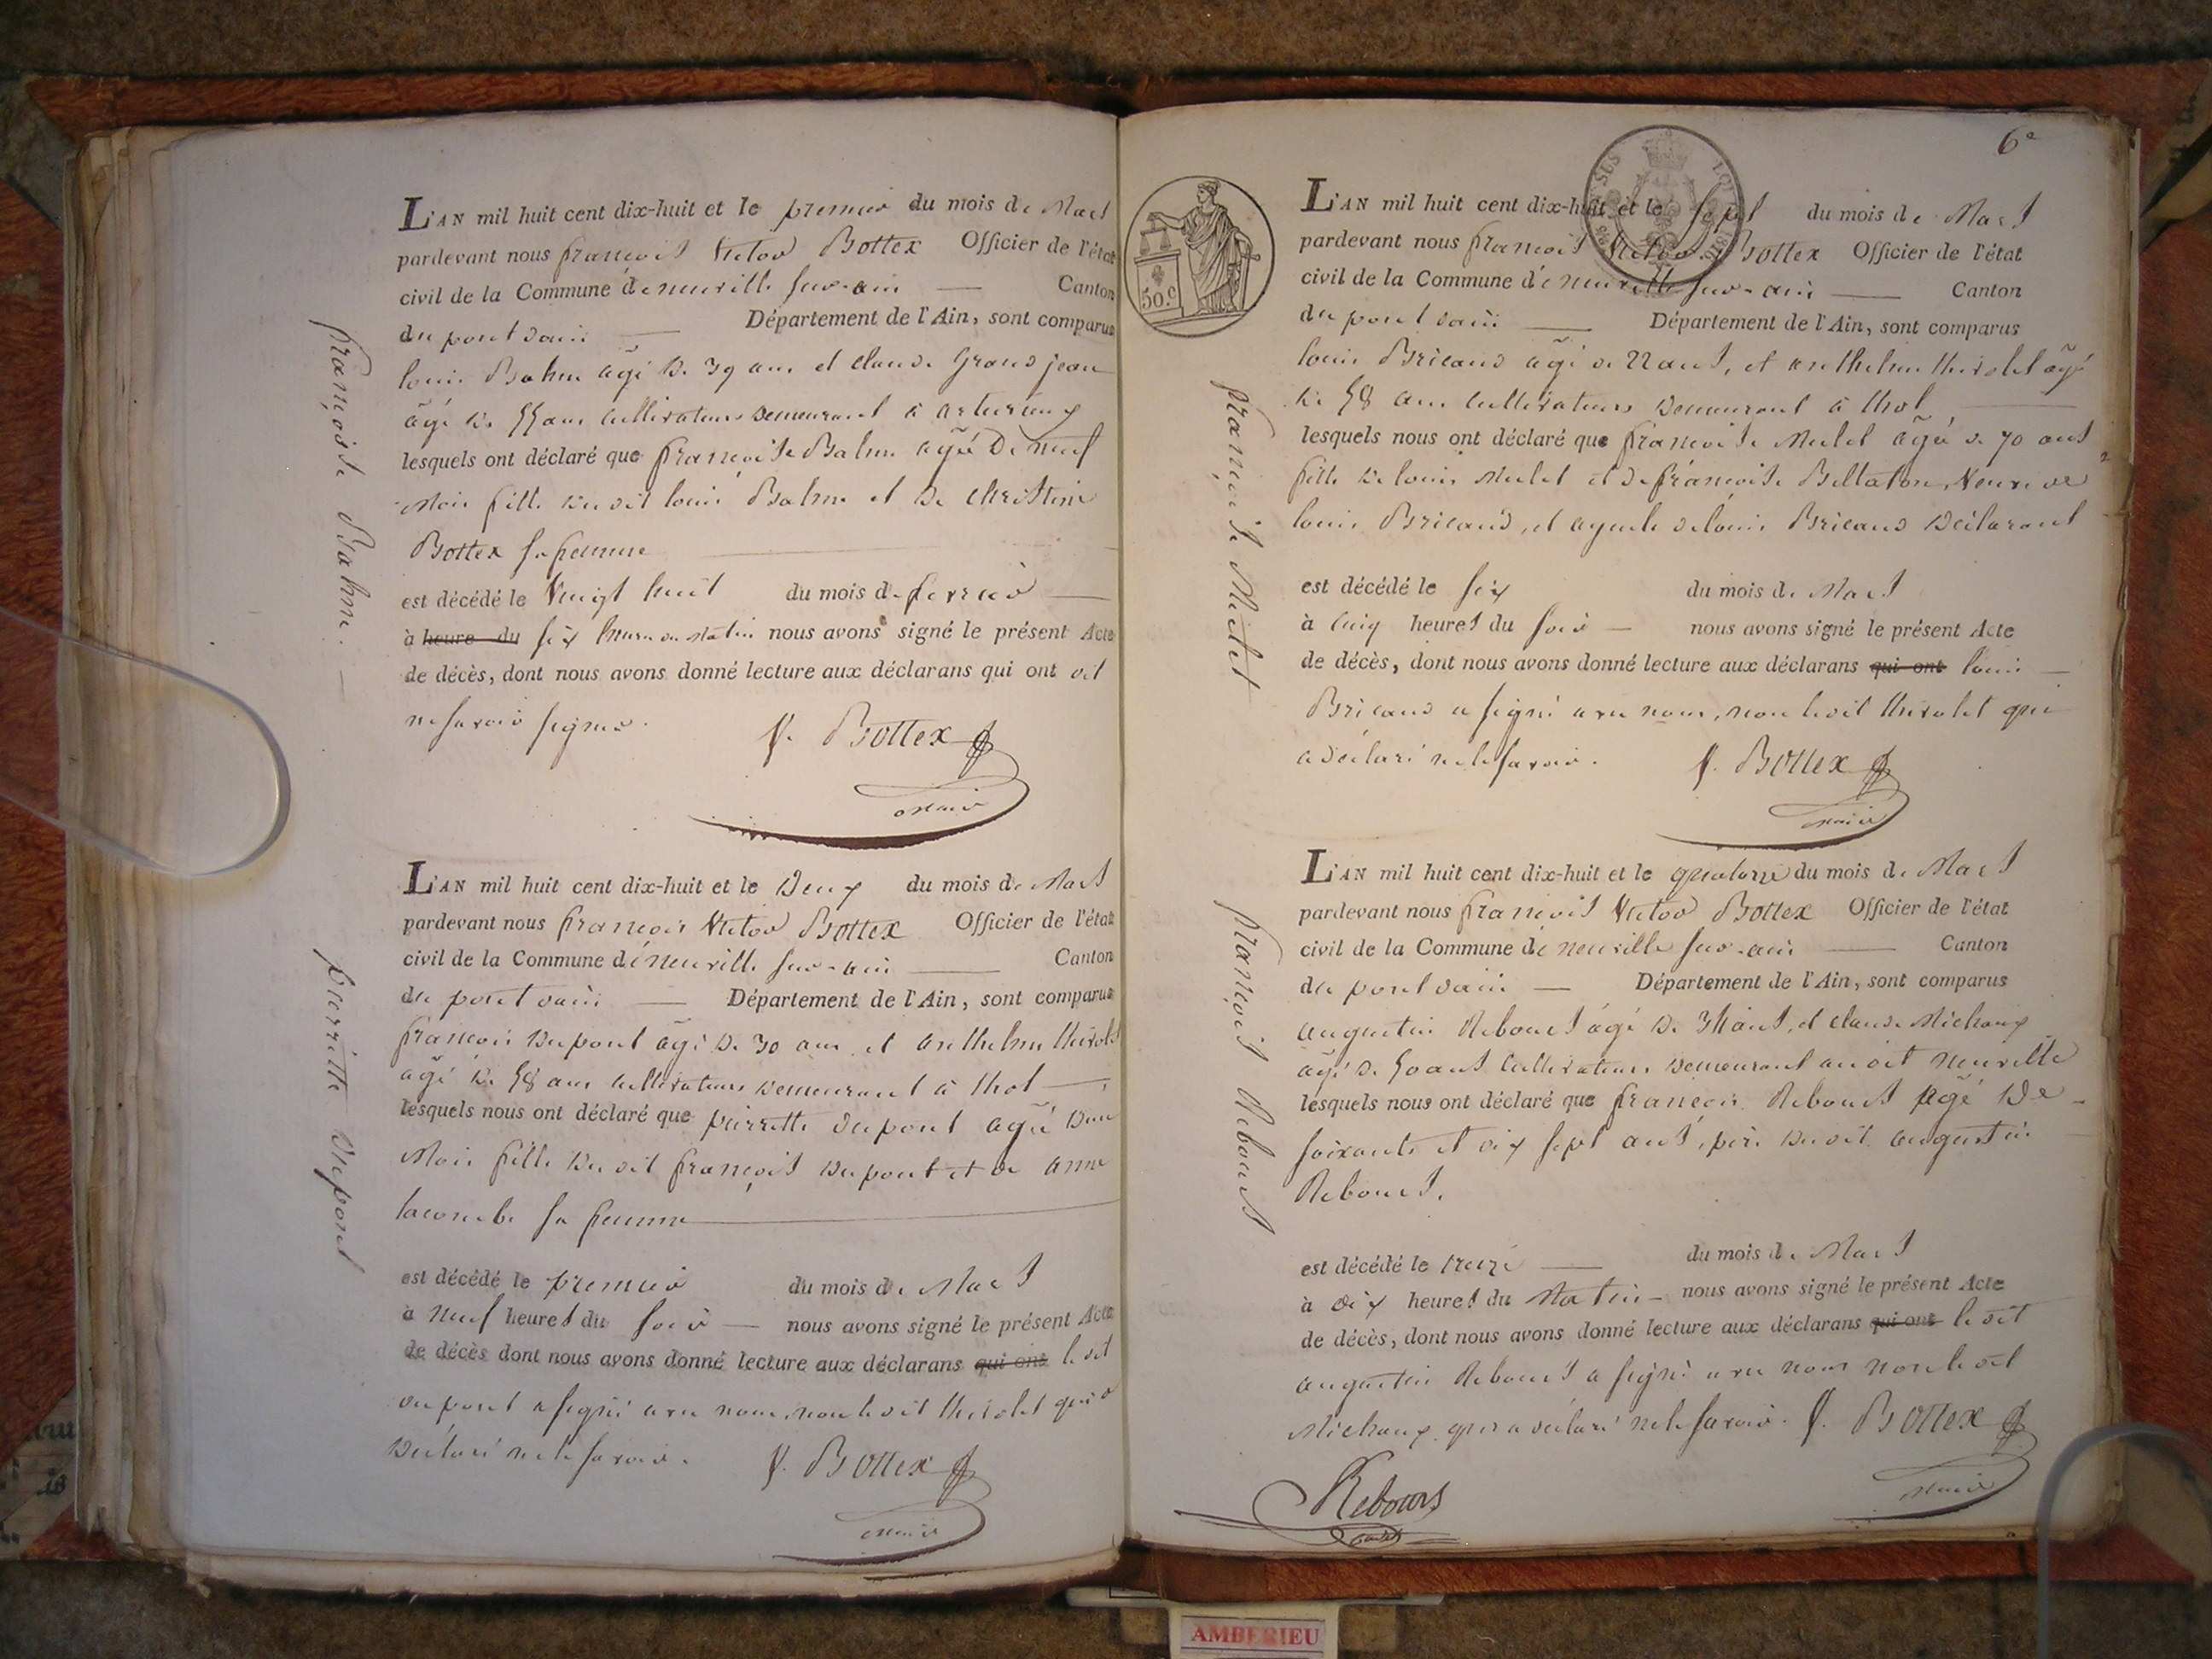 L'AN mil huit cent dix-huit et le premier du mois de Mars
pardevant nous françois Victor Bottex Officier de l'état
civil de la Commune de neuville sur-ain — Canton
du pont dain — Département de l'Ain, sont comparus
louis Balme agé de 39 ans et claude Grand jean
agé de 55 ans cultivateurs demeurant à
lesquels ont déclaré que françoise Balme agée De neuf
Mois fille du dit louis Balme et de Christine
Bottex sa femme
est décédé le Vingt huit du mois de fevrier —
à heure du six heures du Matin nous avons signé le présent Acte
de décès, dont nous avons donné lecture aux déclarans qui ont dit
ne savoir signer.
f. Bottex
Maire
françoise Balme. —
L'AN mil huit cent dix-huit et le Deux du mois de Mars
pardevant nous françois Victor Bottex Officier de l'état
civil de la Commune de neuville sur-ain — Canton
du pont dain — Département de l'Ain, sont comparus
françois Dupont agé De 30 ans et anthelme thivolet
agé de 58 ans cultivateurs demeurant à thol —
lesquels nous ont déclaré que pierrette dupont agée Dun
Mois fille du dit françois Dupont et de anne
lacombe sa femme
est décédé le premier du mois de Mars
à neuf heures du soir — nous avons signé le présent Acte
de décès dont nous avons donné lecture aux déclarans qui ont le dit
dupont a signé avec nous, non le dit thivolet qui a
Déclaré ne le savoir.
f. Bottex
Maire
pierrette Dupont
6e
50.c
L'AN mil huit cent dix-huit et le sept du mois de Mars
pardevant nous françois Victor Bottex Officier de l'état
civil de la Commune de neuville sur-ain — Canton
du pont dain — Département de l'Ain, sont comparus
louis Bricaud agé de 22 ans, et anthelme thivolet agé
de 58 ans cultivateurs demeurant à thol —
lesquels nous ont déclaré que françoise Mulet agée de 70 ans
fille de louis Mulet et de françoise Bellaton, Veuve de
louis Bricaud, et ayeule de louis Bricaud Déclarant
est décédé le six du mois de Mars
à cinq heures du soir — nous avons signé le présent Acte
de décès, dont nous avons donné lecture aux déclarans qui ont louis —
Bricaud a signé avec nous, non le dit thivolet qui
a déclaré ne le savoir.
f. Bottex
Maire
françoise Mulet
L'AN mil huit cent dix-huit et le quatorze du mois de Mars
pardevant nous françois Victor Bottex Officier de l'état
civil de la Commune de neuville sur-ain — Canton
du pont dain — Département de l'Ain, sont comparus
augustin Rebours agé De ans, et claude Michaux
agé de 50 ans cultivateurs demeurant au dit neuville
lesquels nous ont déclaré que françois Rebours agé De
soixante et dix sept ans, père du dit augustin
Rebours.
est décédé le treize — du mois de Mars
à dix heures du Matin — nous avons signé le présent Acte
de décès, dont nous avons donné lecture aux déclarans qui ont le dit
augustin Rebours a signé avec nous non le dit
Michaux qui a déclaré ne le savoir. f. Bottex
Maire
Rebours
françois Rebours
AMBERIEU